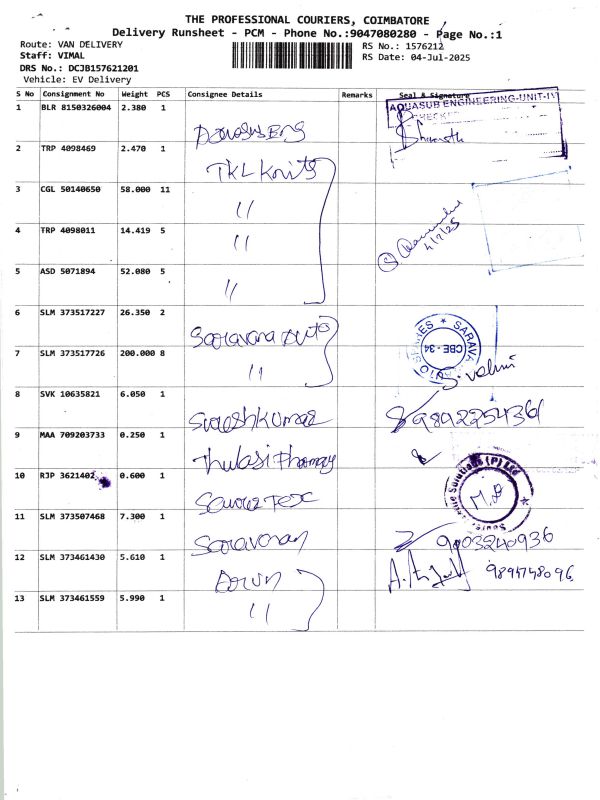 THE PROFESSIONAL COURIERS, COIMBATORE
Delivery Runsheet - PCM - Phone No.:9047080280 - Page No.:1
Route: VAN DELIVERY
RS No.: 1576212
Staff: VIMAL
RS Date: 04-Jul-2025
DRS No.: DCJB157621201
Vehicle: EV Delivery
S No Consignment No Weight PCS Consignee Details Remarks Seal & Signature
AQUASUB ENGINEERING-UNIT-IV
1 BLR 8150326004 2.380 1
2 TRP 4098469 2.470 1 TKL Knits
3 CGL 50140650 58.000 11 〃
4 TRP 4098011 14.419 5 〃
4/7/25
5 ASD 5071894 52.080 5 〃
6 SLM 373517227 26.350 2 Saravana Auto
CBE - 34
7 SLM 373517726 200.000 8 〃
8 SVK 10635821 6.050 1 Sureshkumar 9892254361
9 MAA 709203733 0.250 1 Thulasi Pharmacy
10 RJP 3621402 0.600 1 Source Tex
Solutions (P) Ltd
11 SLM 373507468 7.300 1 Saravanan 9003240936
12 SLM 373461430 5.610 1 Arun 9894748096
13 SLM 373461559 5.990 1 〃